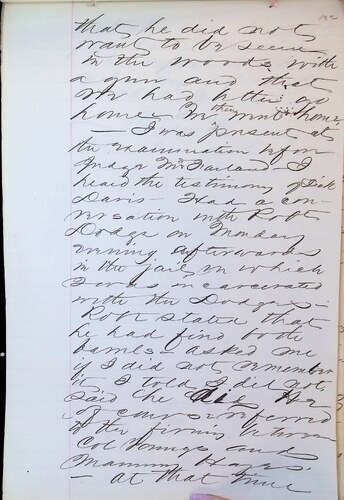 that he did not
want to be seen
in the woods with
a gun and that
we had better go
home. We then went home
— I was present at
the examination before
Judge McFarland — I
heard the testimony of Dick
Davis — Had a con-
versation with Robt
Dodge on Monday
evening afterwards
in the jail in which
I was incarcerated
with the Dodges —
Robt stated that
he had fired both
barrels — asked me
if I did not remember
it. I told I did not
said he did He
of course referred
to the firing between
Col Youngs and
Mammy
— at that time